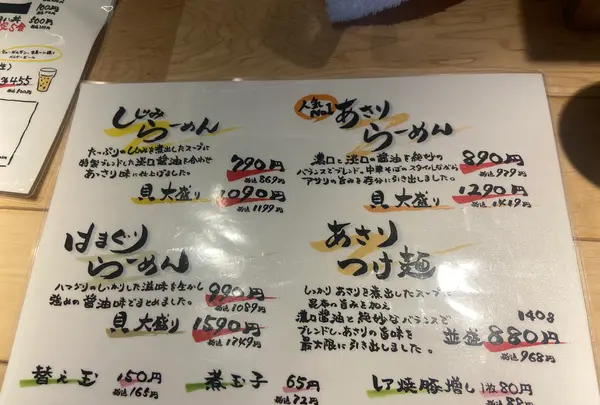 500円
¥455
しじみ
らーめん
たっぷりのしじみを煮出したスープに
特製ブレンドした淡口醤油を合わせ
あっさり味に仕上げました。
790円
税込869円
貝大盛り 1090円
税込1199円
人気
No.1
あさり
らーめん
濃口と淡口の醤油を絶妙の
バランスでブレンド。中華そばのスタイルながら
アサリの旨みを存分に引き出しました。
890円
税込979円
貝大盛り 1290円
税込1419円
はまぐり
らーめん
ハマグリのしっかりした滋味を生かし
強めの醤油味でまとめました。
990円
税込1089円
貝大盛り 1590円
税込1749円
あさり
つけ麺
しっかりあさりを煮出したスープに
昆布の旨みを加え
濃口醤油と絶妙なバランスで
ブレンドし、あさりの旨味を
最大限に引き出しました。
140g
並盛 880円
税込968円
替え玉 150円
税込165円
煮玉子 65円
税込72円
レア焼豚増し 1枚80円
税込88